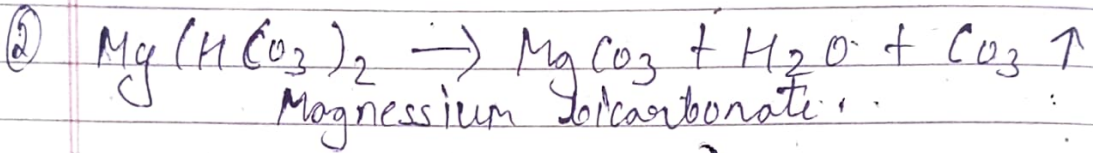 ② Mg(HCO3)2 → MgCO3 + H2O + CO3 ↑
Magnessium bicarbonate.